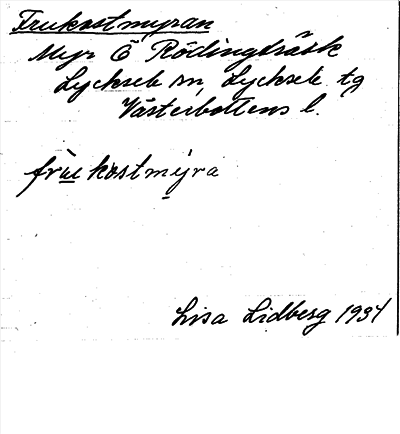 Frukostmyran
Myr Ö Rödingträsk
Lycksele sn, Lycksele tg
Västerbottens l.
frùkostmýra
Lisa Lidberg 1934